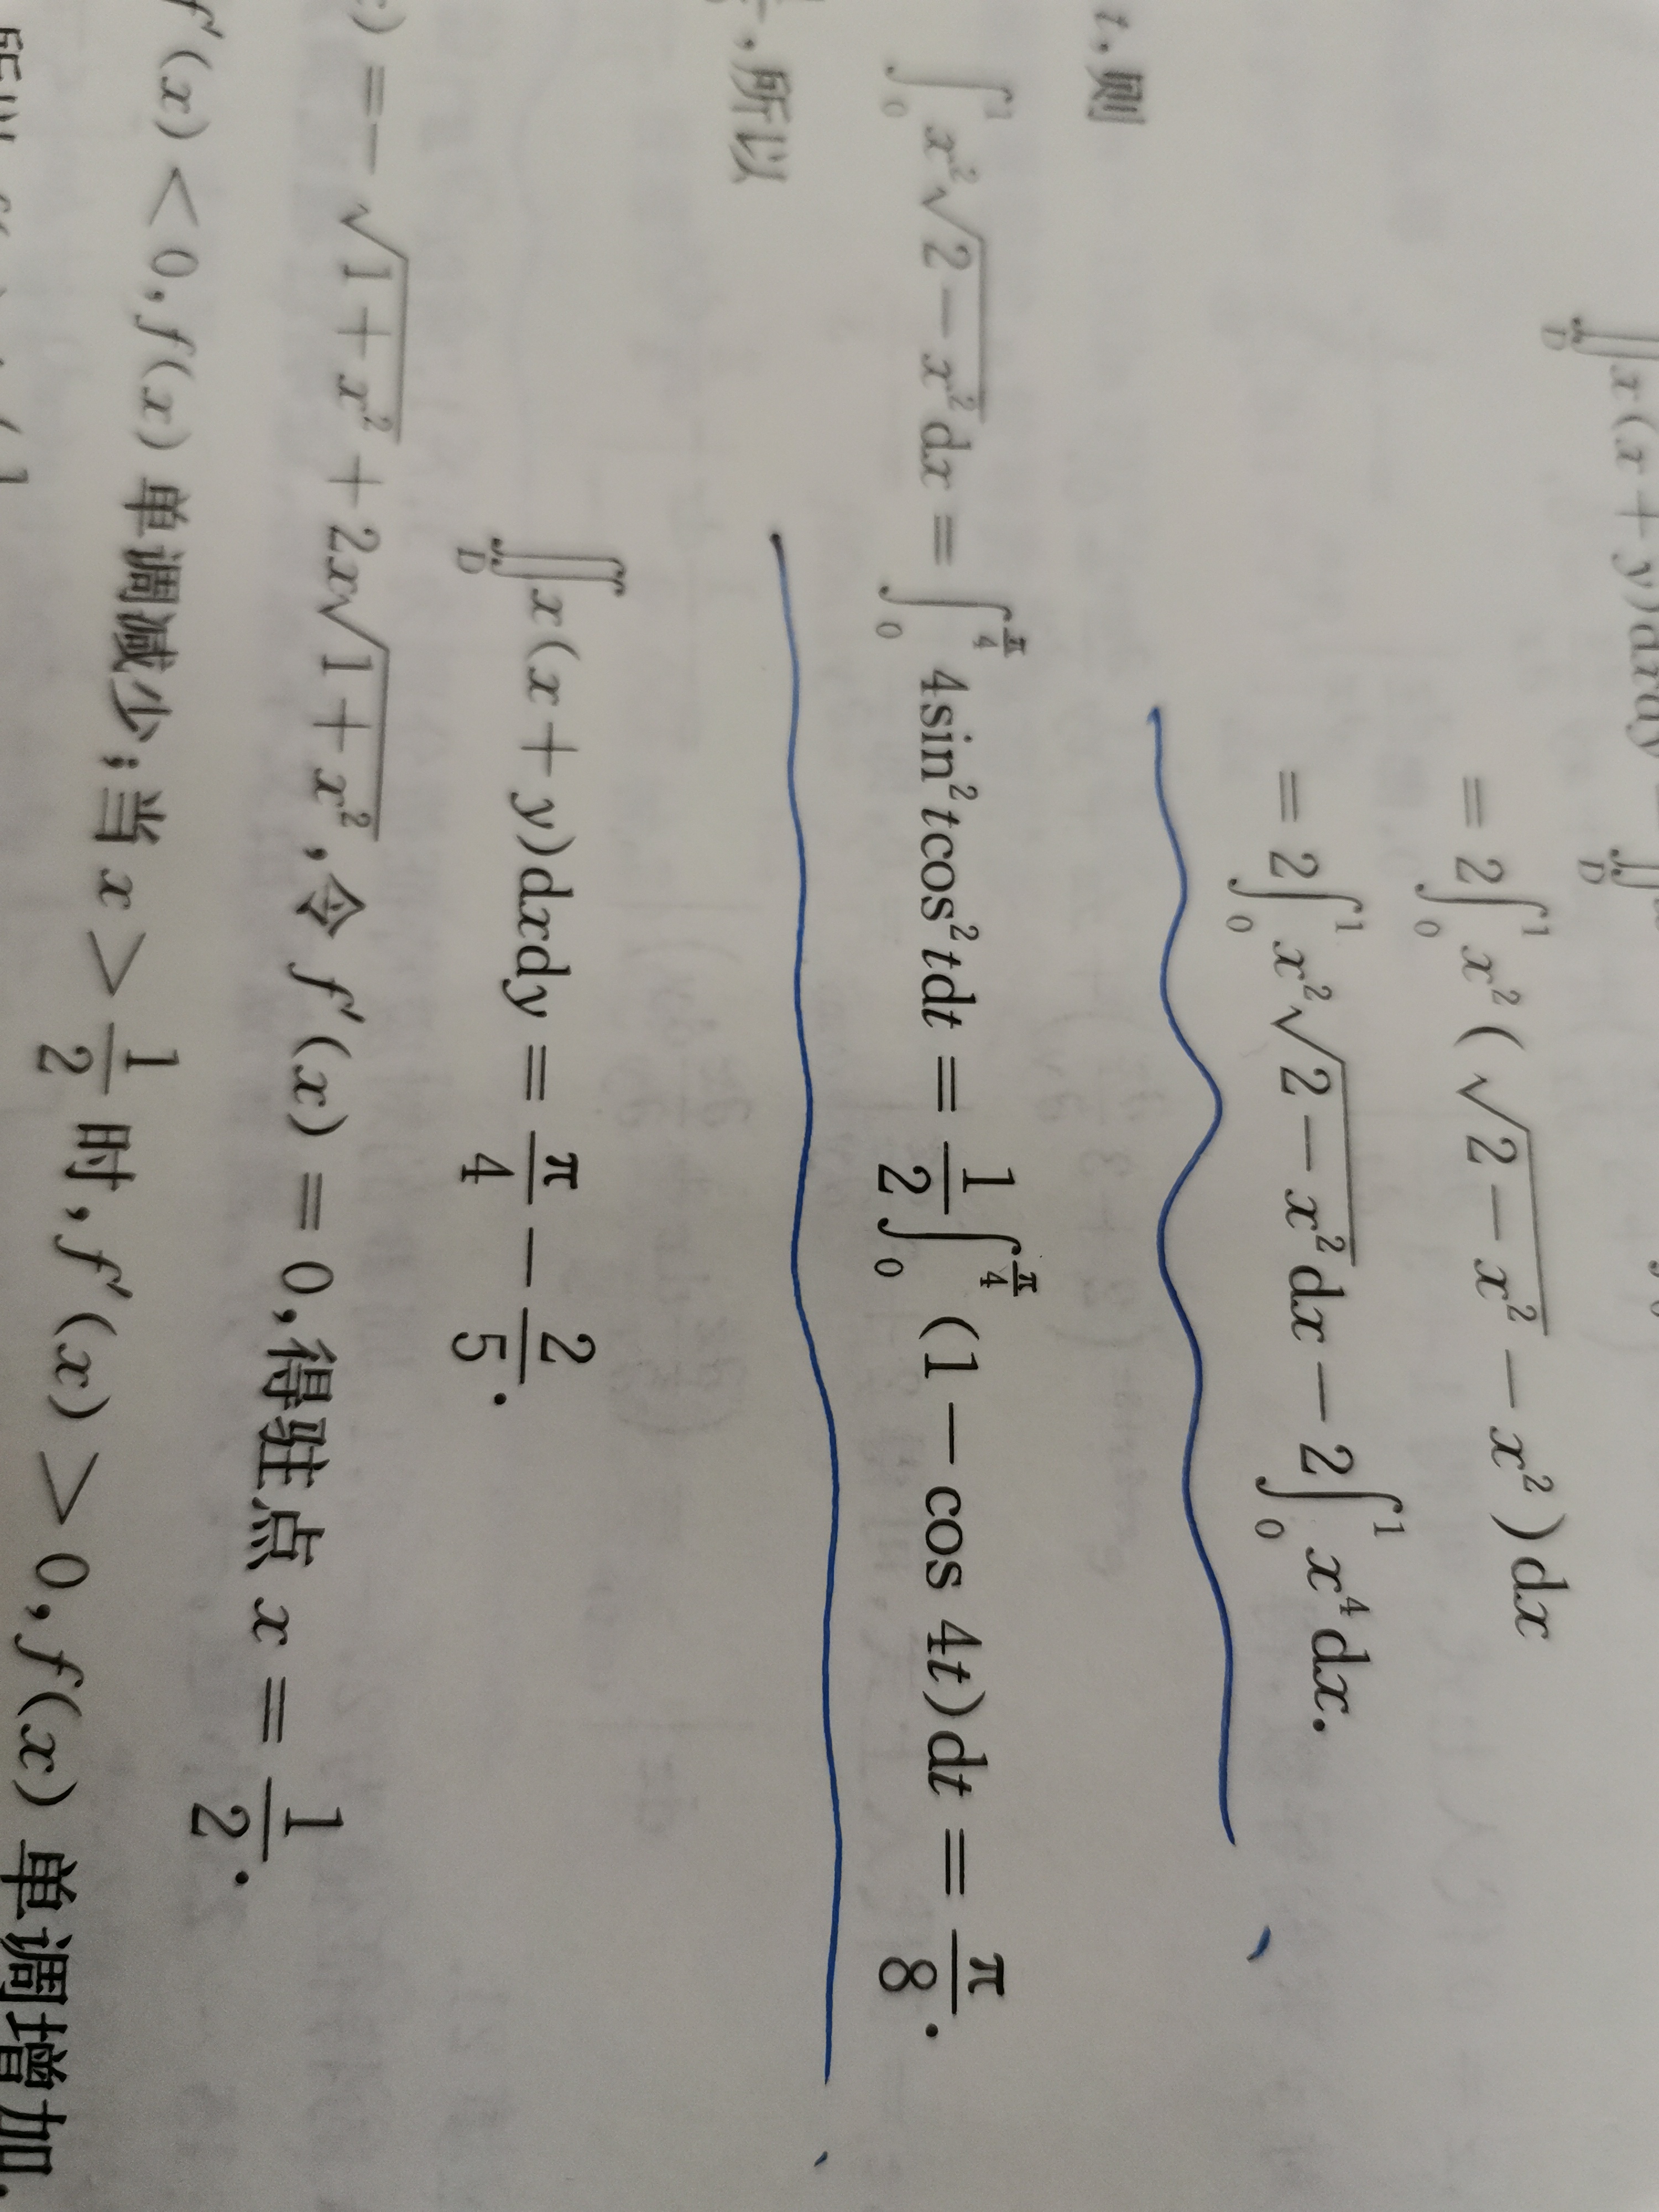 ∬_D x(x+y)dxdy
= 2∫_0^1 x²(√(2-x²) - x²)dx
= 2∫_0^1 x²√(2-x²)dx - 2∫_0^1 x⁴dx.
t,则
∫_0^1 x²√(2-x²)dx = ∫_0^{π/4} 4sin²tcos²tdt = 1/2∫_0^{π/4} (1-cos 4t)dt = π/8.
,所以
∬_D x(x+y)dxdy = π/4 - 2/5.
) = -√(1+x²) + 2x√(1+x²),令 f′(x) = 0,得驻点 x = 1/2.
f′(x) < 0,f(x) 单调减少;当 x > 1/2 时,f′(x) > 0,f(x) 单调增加.